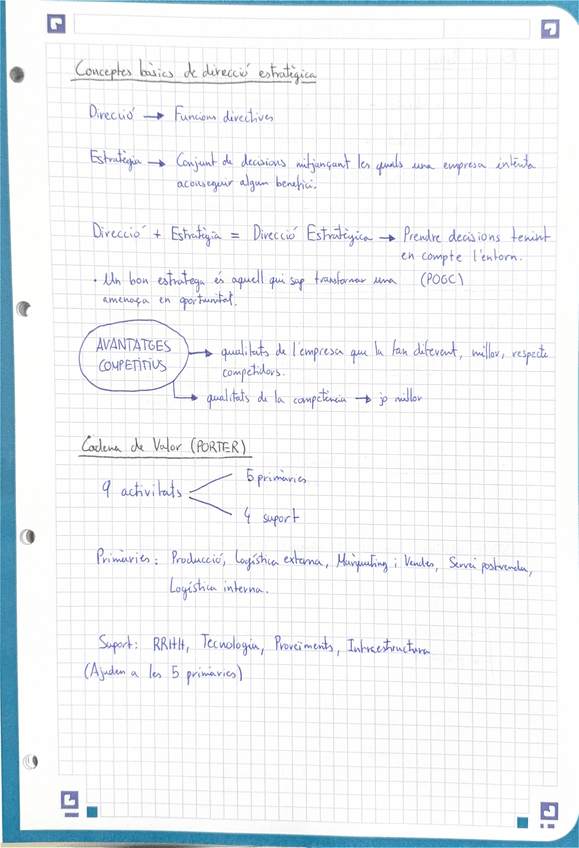 Conceptes bàsics de direcció estratègica
Direcció → Funcions directives
Estratègia → Conjunt de decisions mitjançant les quals una empresa intenta
aconseguir algun benefici.
Direcció + Estratègia = Direcció Estratègica → Prendre decisions tenint
en compte l'entorn.
· Un bon estratega és aquell qui sap transformar una (POGC)
amenaça en oportunitat.
AVANTATGES
COMPETITIUS
→ qualitats de l'empresa que la fan diferent, millor, respecte
competidors.
→ qualitats de la competència → jo millor
Cadena de Valor (PORTER)
5 primàries
9 activitats
4 suport
Primàries: Producció, Logística externa, Màrqueting i Vendes, Servei postvenda,
Logística interna.
Suport: RRHH, Tecnologia, Proveïments, Infraestructura
(Ajuden a les 5 primàries)